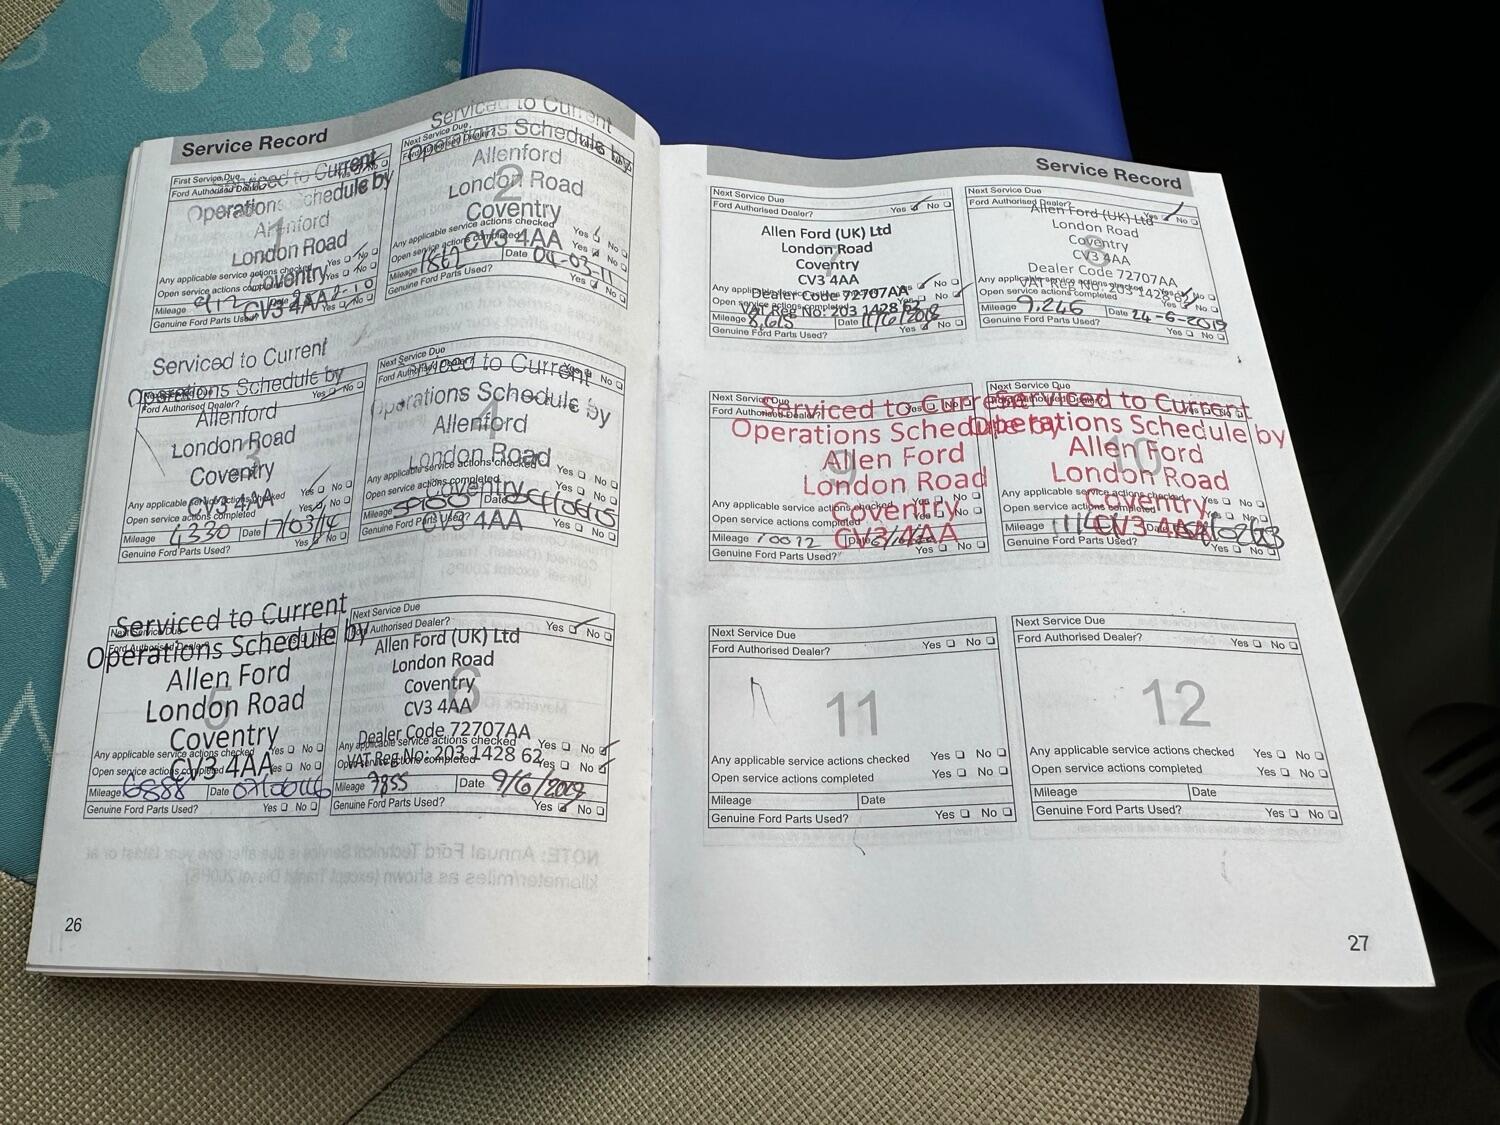 Service Record
First Service Due
Ford Authorised Dealer?
Serviced to Current
Operations Schedule by
Allenford
London Road
Coventry
CV3 4AA
Any applicable service actions checked Yes No
Open service actions completed Yes No
Mileage Date
Genuine Ford Parts Used? Yes No
Next Service Due
Ford Authorised Dealer?
2
Serviced to Current
Operations Schedule by
Allenford
London Road
Coventry
CV3 4AA
Any applicable service actions checked Yes No
Open service actions completed Yes No
Mileage 1867 Date 04-03-11
Genuine Ford Parts Used? Yes No
Serviced to Current
Operations Schedule by
Next Service Due
Ford Authorised Dealer? Yes No
3
Allenford
London Road
Coventry
CV3 4AA
Any applicable service actions checked Yes No
Open service actions completed Yes No
Mileage 4330 Date 17/03/14
Genuine Ford Parts Used? Yes No
Next Service Due
Ford Authorised Dealer? Yes No
4
Serviced to Current
Operations Schedule by
Allenford
London Road
Coventry
CV3 4AA
Any applicable service actions checked Yes No
Open service actions completed Yes No
Mileage Date
Genuine Ford Parts Used? Yes No
Serviced to Current
Operations Schedule by
Next Service Due
Ford Authorised Dealer? Yes No
5
Allen Ford
London Road
Coventry
CV3 4AA
Any applicable service actions checked Yes No
Open service actions completed Yes No
Mileage 6888 Date
Genuine Ford Parts Used? Yes No
Next Service Due
Ford Authorised Dealer? Yes No
6
Allen Ford (UK) Ltd
London Road
Coventry
CV3 4AA
Dealer Code 72707AA
VAT Reg No: 203 1428 62
Any applicable service actions checked Yes No
Open service actions completed Yes No
Mileage 7855 Date
Genuine Ford Parts Used? Yes No
26
Service Record
Next Service Due
Ford Authorised Dealer? Yes No
7
Allen Ford (UK) Ltd
London Road
Coventry
CV3 4AA
Dealer Code 72707AA
VAT Reg No: 203 1428 62
Any applicable service actions checked Yes No
Open service actions completed Yes No
Mileage 8,615 Date 11/6/2018
Genuine Ford Parts Used? Yes No
Next Service Due
Ford Authorised Dealer? Yes No
8
Allen Ford (UK) Ltd
London Road
Coventry
CV3 4AA
Dealer Code 72707AA
VAT Reg No: 203 1428 62
Any applicable service actions checked Yes No
Open service actions completed Yes No
Mileage 9,246 Date 24-6-2019
Genuine Ford Parts Used? Yes No
Next Service Due
Ford Authorised Dealer? Yes No
9
Serviced to Current
Operations Schedule by
Allen Ford
London Road
Coventry
CV3 4AA
Any applicable service actions checked Yes No
Open service actions completed Yes No
Mileage 10012 Date
Genuine Ford Parts Used? Yes No
Next Service Due
Ford Authorised Dealer? Yes No
10
Serviced to Current
Operations Schedule by
Allen Ford
London Road
Coventry
CV3 4AA
Any applicable service actions checked Yes No
Open service actions completed Yes No
Mileage Date
Genuine Ford Parts Used? Yes No
Next Service Due
Ford Authorised Dealer? Yes No
11
Any applicable service actions checked Yes No
Open service actions completed Yes No
Mileage Date
Genuine Ford Parts Used? Yes No
Next Service Due
Ford Authorised Dealer? Yes No
12
Any applicable service actions checked Yes No
Open service actions completed Yes No
Mileage Date
Genuine Ford Parts Used? Yes No
27